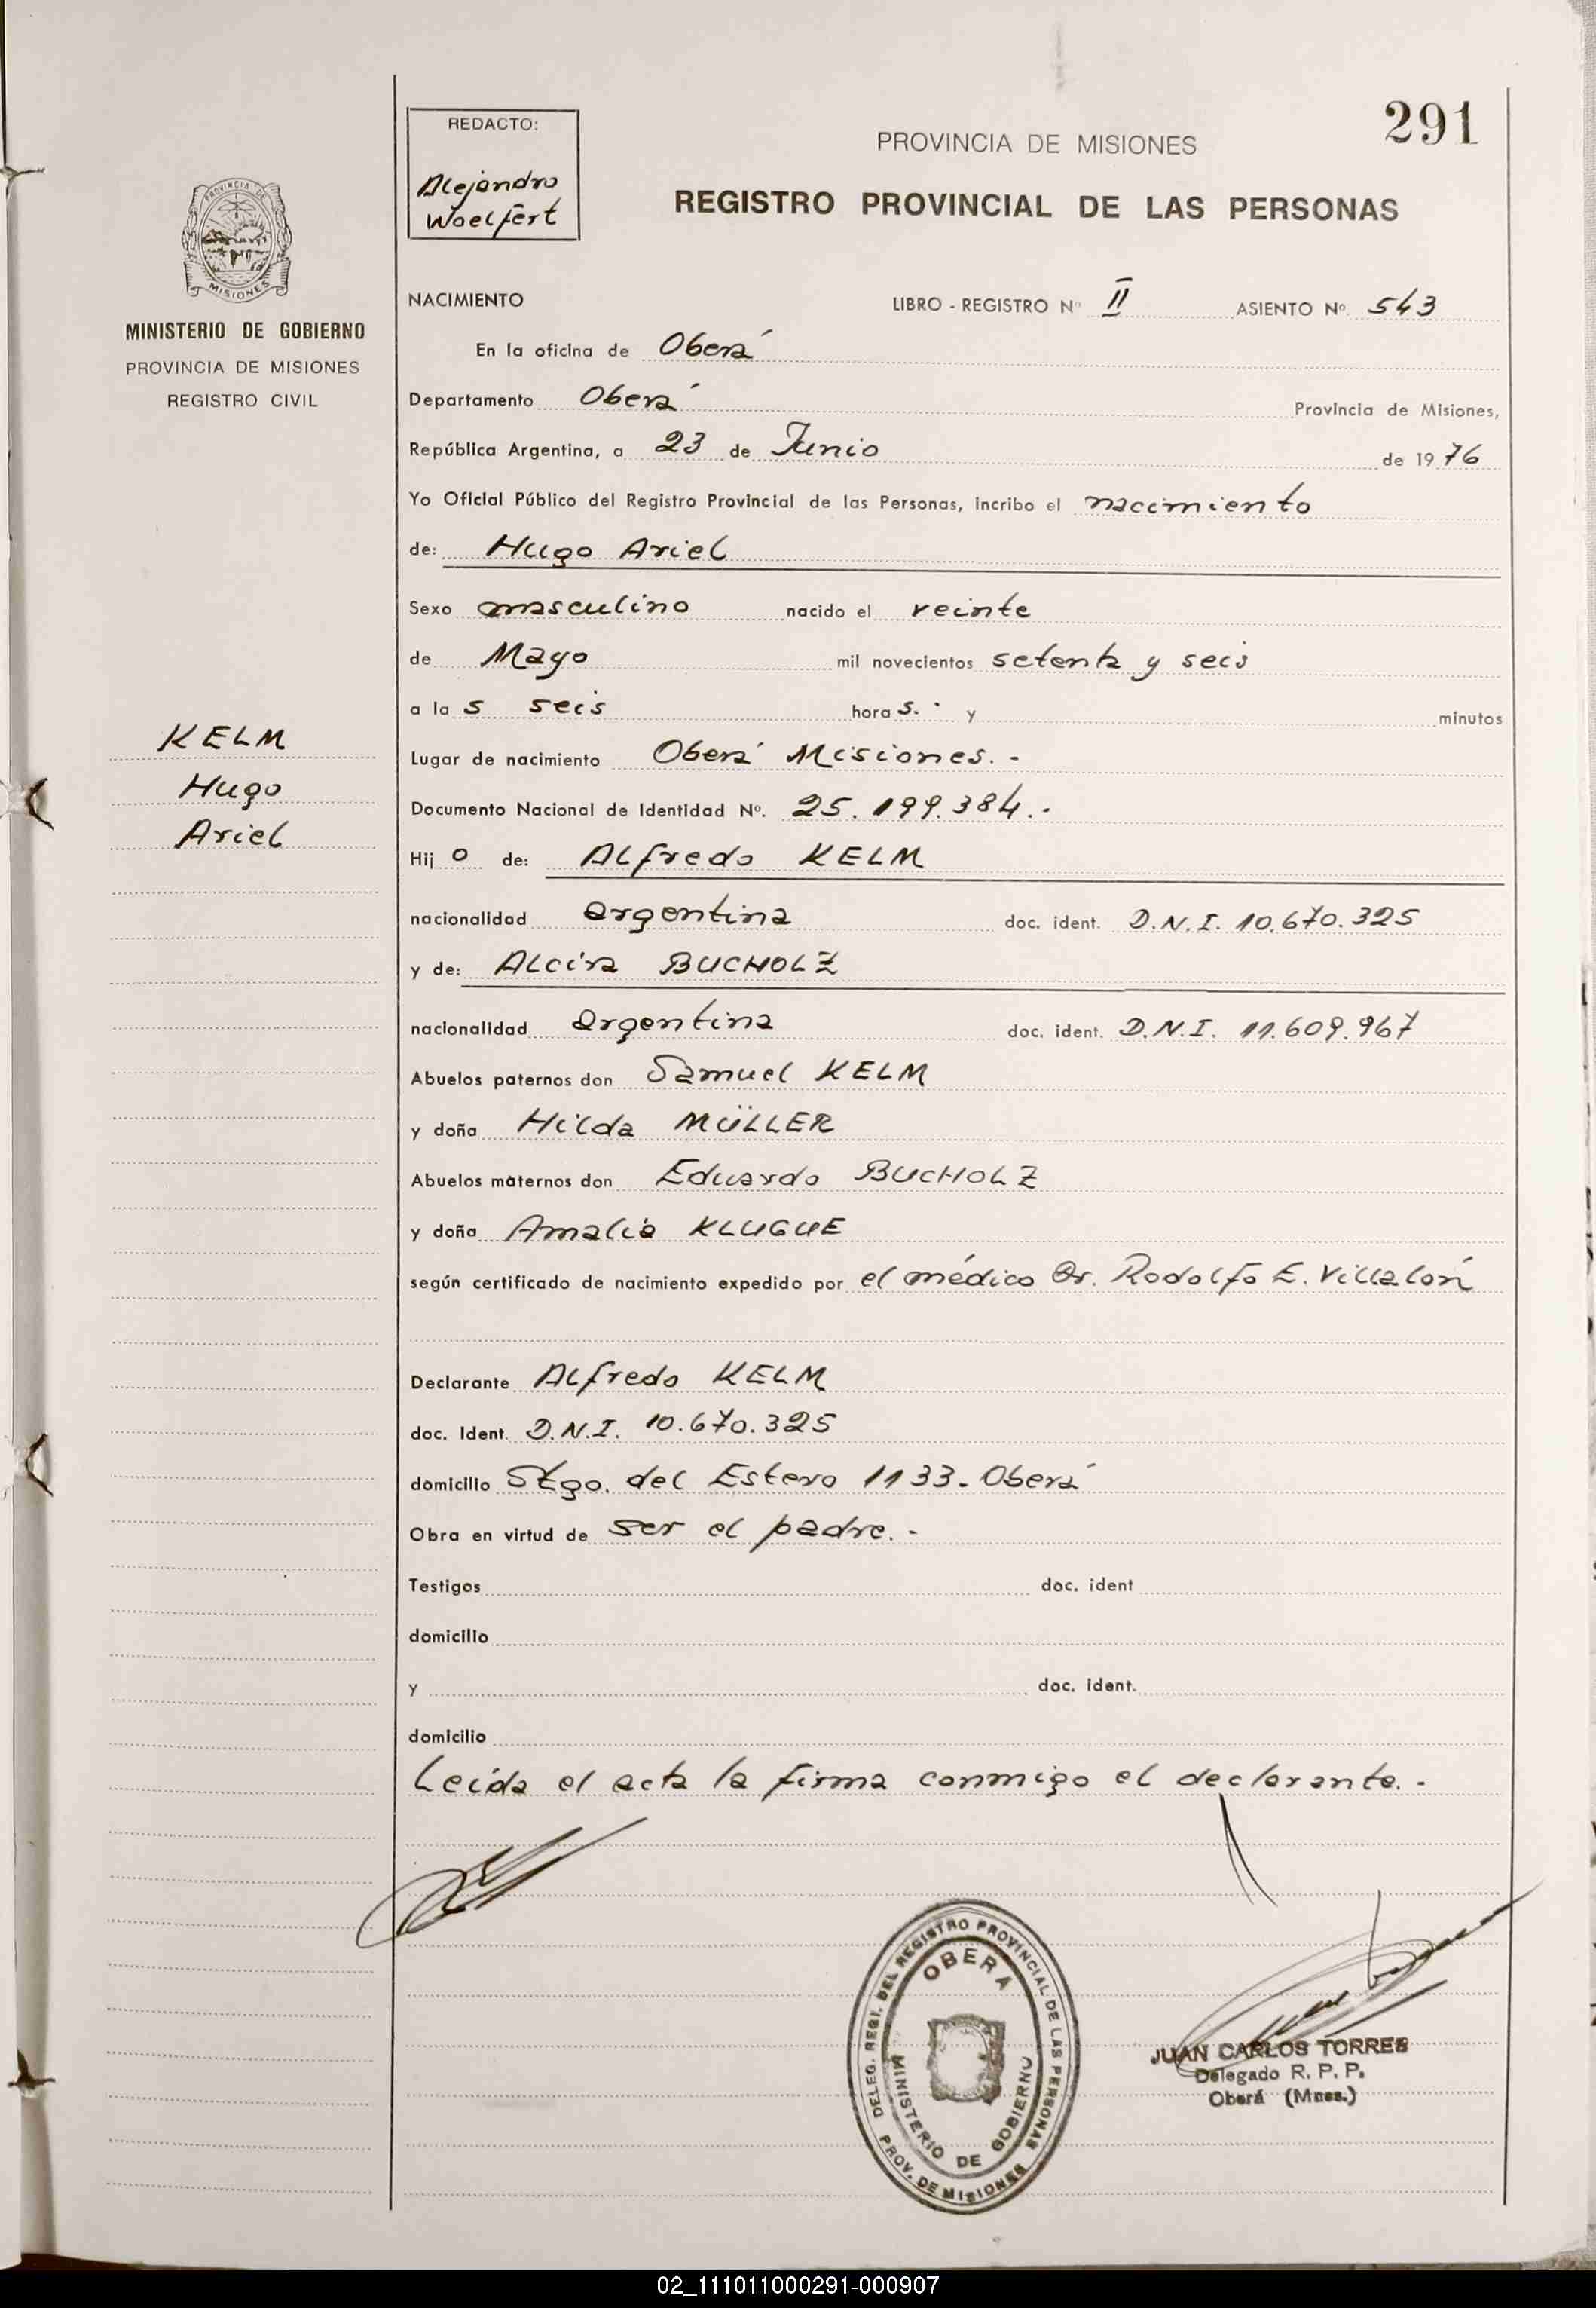 291
REDACTO:
Alejandro
Woelfert
PROVINCIA DE MISIONES
REGISTRO PROVINCIAL DE LAS PERSONAS
PROVINCIA DE
MISIONES
MINISTERIO DE GOBIERNO
PROVINCIA DE MISIONES
REGISTRO CIVIL
NACIMIENTO LIBRO - REGISTRO Nº II ASIENTO Nº. 543
En la oficina de Oberá
Departamento Oberá Provincia de Misiones,
República Argentina, a 23 de Junio de 1976
Yo Oficial Público del Registro Provincial de las Personas, incribo el nacimiento
de: Hugo Ariel
Sexo masculino nacido el veinte
de Mayo mil novecientos setenta y seis
a la s seis hora s. y minutos
KELM
Hugo
Ariel
Lugar de nacimiento Oberá Misiones. -
Documento Nacional de Identidad Nº. 25.199.384.-
Hij o de: Alfredo KELM
nacionalidad argentina doc. ident. D.N.I. 10.670.325
y de: Alcira BUCHOLZ
nacionalidad argentina doc. ident. D.N.I. 11.609.967
Abuelos paternos don Samuel KELM
y doña Hilda MÜLLER
Abuelos maternos don Eduardo BUCHOLZ
y doña Amalia KLUGUE
según certificado de nacimiento expedido por el médico Dr. Rodolfo E. Villalón
Declarante Alfredo KELM
doc. Ident. D.N.I. 10.670.325
domicilio Stgo. del Estero 1133. Oberá
Obra en virtud de ser el padre. -
Testigos doc. ident
domicilio
y doc. ident.
domicilio
Leída el acta la firma conmigo el declarante. -
DELEG. REGI. DEL REGISTRO PROVINCIAL DE LAS PERSONAS
OBERA
MINISTERIO DE GOBIERNO
PROV. DE MISIONES
JUAN CARLOS TORRES
Delegado R. P. P.
Oberá (Mnes.)
02_111011000291-000907